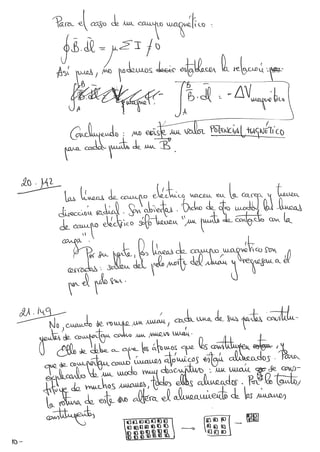 Para el caso de un campo magnético:
∮ B̄·dl̄ = μ Σ I ≠ 0
Así pues, no podemos establecer la relación:
∫_A^B B̄·dl̄ = -ΔV magnético
Concluyendo: no existe un valor POTENCIAL MAGNÉTICO
para cada punto de un B̄.
20.142
Las líneas de campo eléctrico nacen en la carga y tienen
dirección radial. Son abiertas. Dicho de otro modo, las líneas
de campo eléctrico sólo tienen "un punto de contacto con la
carga".
Por su parte, las líneas de campo magnético son
cerradas: salen del polo norte del imán y regresan a él
por el polo sur.
21.149
No, cuando se rompe un imán, cada una de sus partes constitu-
yentes se comportan como un nuevo imán.
Ello se debe a que los átomos que los constituyen, y
que se comportan como imanes atómicos están alineados. Para
explicarlo de un modo muy descriptivo: un imán se cons-
tituye de muchos imanes, todos ellos alineados. Por lo tanto,
la rotura de este no altera el alineamiento de los imanes
constituyentes
10-